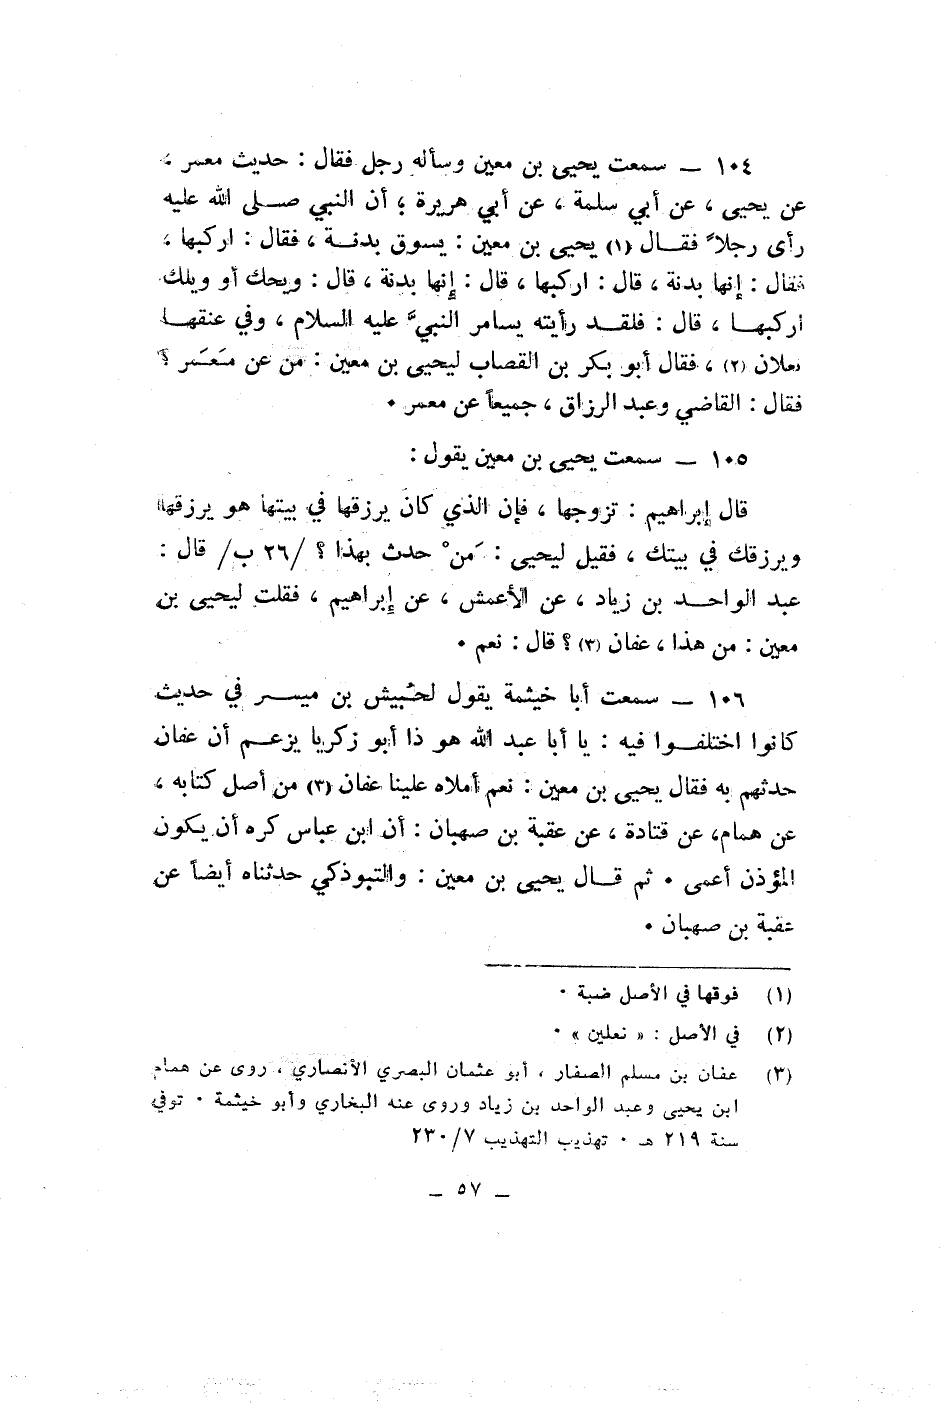 ١٠٤ ــ سمعت يحيى بن معين وسأله رجل فقال : حديث معمر ،
عن يحيى ، عن أبي سلمة ، عن أبي هريرة ، أن النبي صلى الله عليه
رأى رجلاً فقال (١) يحيى بن معين : يسوق بدنة ، فقال : اركبها ،
فقال : إنها بدنة ، قال : اركبها ، قال : إنها بدنة ، قال : ويحك أو ويلك
اركبها ، قال : فلقد رأيته يساير النبيّ عليه السلام ، وفي عنقها
نعلان (٢) ، فقال أبو بكر بن القصاب ليحيى بن معين : من عن مَعمر ؟
فقال : القاضي وعبد الرزاق ، جميعاً عن معمر ٠
١٠٥ ــ سمعت يحيى بن معين يقول :
قال إبراهيم : تزوجها ، فإن الذي كان يرزقها في بيتها هو يرزقها
ويرزقك في بيتك ، فقيل ليحيى : مَنْ حدث بهذا ؟ /٢٦ ب/ قال :
عبد الواحد بن زياد ، عن الأعمش ، عن إبراهيم ، فقلت ليحيى بن
معين : من هذا ، عفان (٣) ؟ قال : نعم ٠
١٠٦ ــ سمعت أبا خيثمة يقول لحُبيش بن ميسر في حديث
كانوا اختلفوا فيه : يا أبا عبد الله هو ذا أبو زكريا يزعم أن عفان
حدثهم به فقال يحيى بن معين : نعم أملاه علينا عفان (٣) من أصل كتابه ،
عن همام، عن قتادة ، عن عقبة بن صهبان : أن ابن عباس كره أن يكون
المؤذن أعمى ٠ ثم قال يحيى بن معين : والتبوذكي حدثناه أيضاً عن
عقبة بن صهبان ٠
(١) فوقها في الأصل ضبة ٠
(٢) في الأصل : « نعلين » ٠
(٣) عفان بن مسلم الصفار ، أبو عثمان البصري الأنصاري ، روى عن همام
ابن يحيى وعبد الواحد بن زياد وروى عنه البخاري وأبو خيثمة ٠ توفي
سنة ٢١٩ هـ ٠ تهذيب التهذيب ٢٣٠/٧
ــ ٥٧ ــ